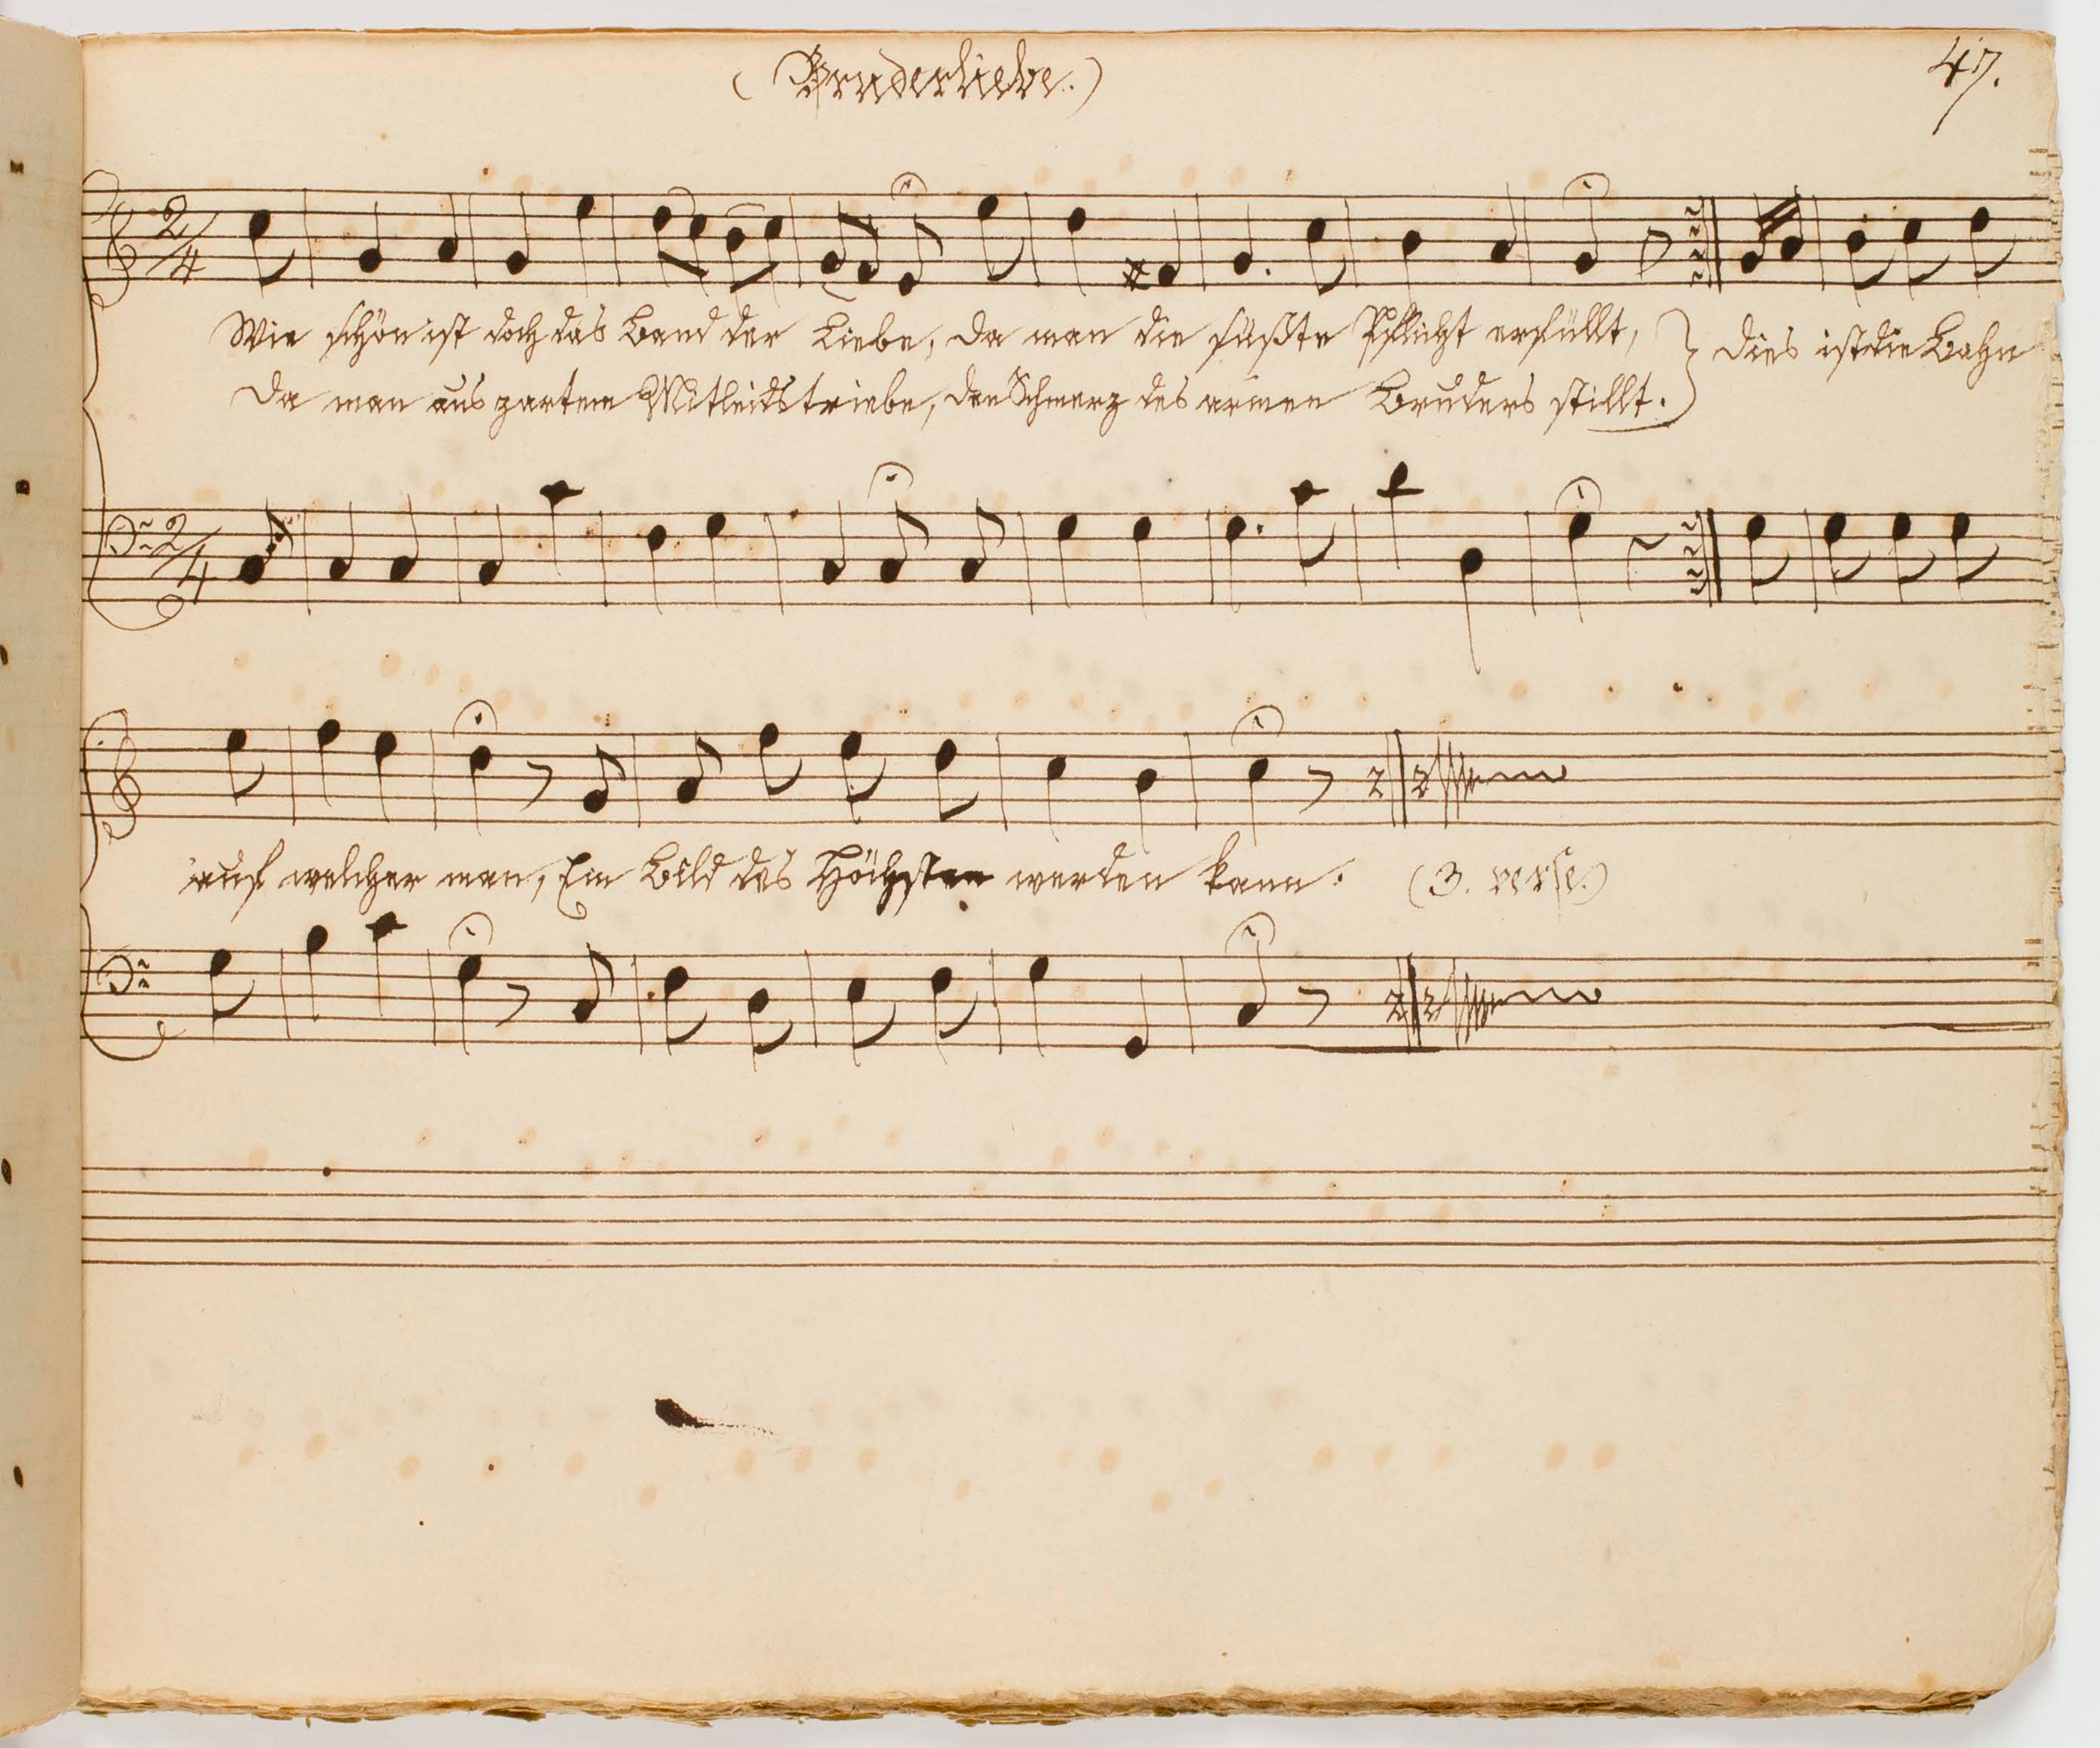 (Bruderliebe.)
47.
2/4
Wie schön ist doch das Band der Liebe, da man die süßte Pflicht erfüllt, } dies ist die Bahn
Da man aus zartem Mitleidstriebe, den Schmerz des armen Bruders stillt.
2/4
auf welcher man, Ein Bild des Höchsten werden kann. (3. verse.)